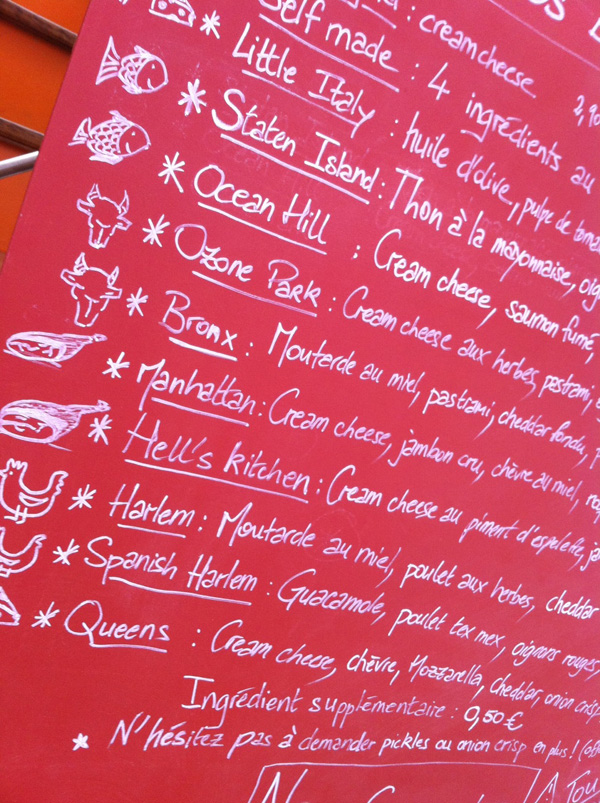 : cream cheese
Self made : 4 ingrédients au
2,90
* Little Italy : huile d'olive, pulpe de
* Staten Island : Thon à la mayonnaise,
* Ocean Hill : Cream cheese, saumon fumé,
* Ozone Park : Cream cheese aux herbes, pastrami,
* Bronx : Mouterde au miel, pastrami, cheddar fondu,
* Manhattan : Cream cheese, jambon cru, chèvre au miel,
* Hell's kitchen : Cream cheese au piment d'espelette,
* Harlem : Moutarde au miel, poulet aux herbes, cheddar
* Spanish Harlem : Guacamole, poulet tex mex, oignons rouges,
* Queens : Cream cheese, chèvre, Mozzarella, cheddar, onion crisp
Ingrédient supplémentaire : 0,50€
* N'hésitez pas à demander pickles ou onion crisp en plus !